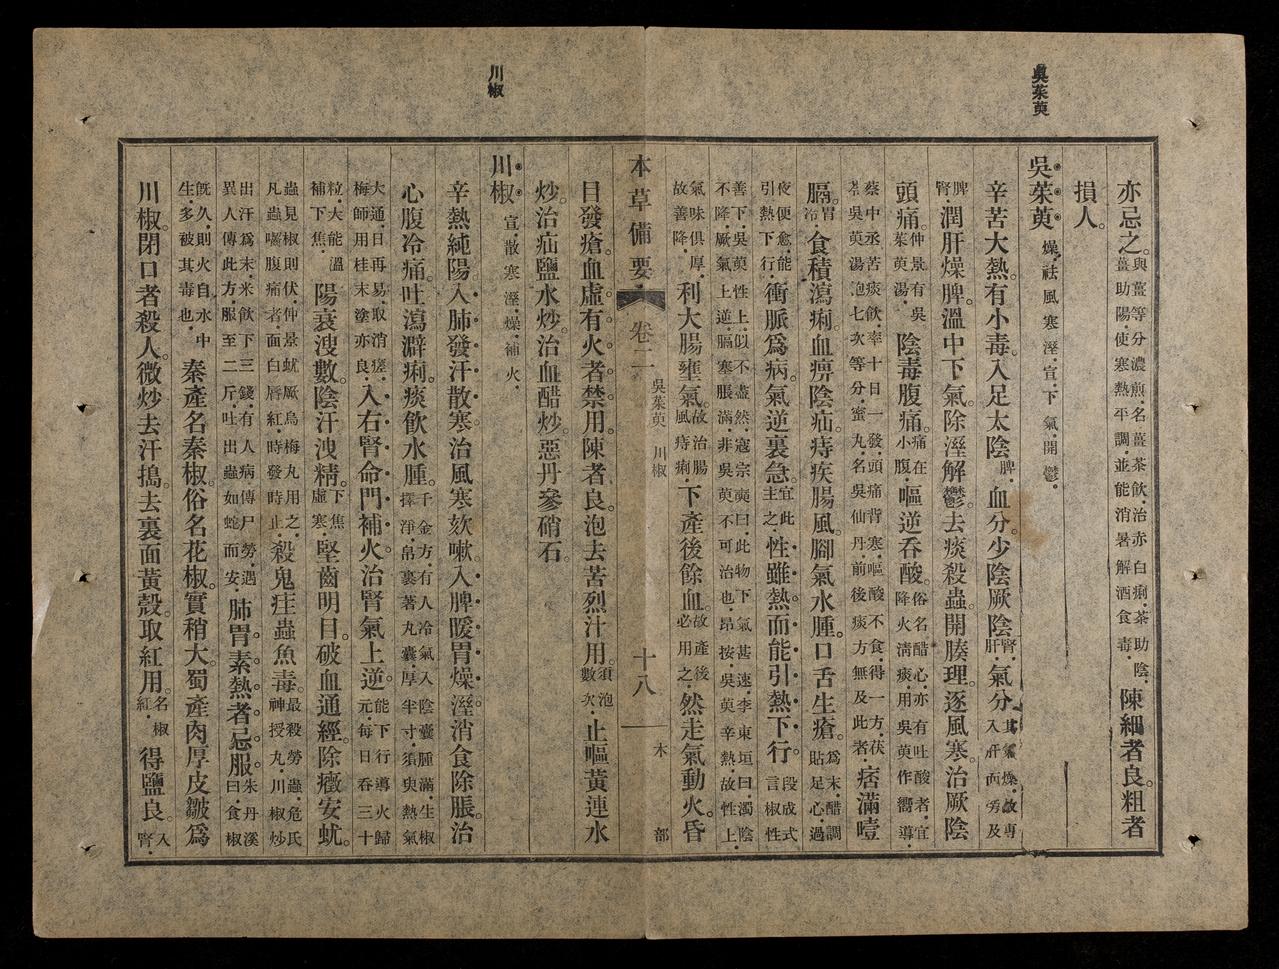 吳茱萸
亦忌之。與薑等分濃煎．名薑茶飲．治赤白痢．茶助陰．薑助陽．使寒熱平調．並能消暑解酒食毒．陳細者良。粗者
損人。
吳茱萸 燥．祛風寒溼．宣．下氣．開鬱．
辛苦大熱。有小毒。入足太陰脾．血分。少陰厥陰腎．肝．氣分．其氣燥．故專入肝而旁及
脾腎．潤肝燥脾。溫中下氣。除溼解鬱。去痰殺蟲。開腠理。逐風寒。治厥陰
頭痛。仲景有吳茱萸湯．陰毒腹痛。痛在小腹．嘔逆吞酸。俗名醋心．亦有吐酸者．宜降火淸痰．用吳萸作嚮導．
蔡中丞苦痰飲．率十日一發．頭痛背寒．嘔酸不食．得一方．茯苓吳萸湯泡七次等分．蜜丸．名吳仙丹．前後痰方無及此者．痞滿噎
膈。胃冷．食積瀉痢。血痹陰疝。痔疾腸風。腳氣水腫。口舌生瘡。爲末．醋調貼足心．過
夜便愈．能引熱下行．衝脈爲病。氣逆裏急。宜此主之．性雖熱而能引熱下行。段成式言椒性
善下．吳萸性上．似不盡然．寇宗奭曰．此物下氣甚速．李東垣曰．濁陰不降．厥氣上逆．膈塞脹滿．非吳萸不可治也．昂按．吳萸辛熱．故性上．
氣味俱厚．故善降．利大腸壅氣。故治腸風痔痢．下產後餘血。故產後必用之．然走氣動火。昏
本草備要 卷二 吳茱萸 川椒 十八 木部
目發瘡。血虛有火者禁用。陳者良。泡去苦烈汁用。須泡數次．止嘔黃連水
炒。治疝鹽水炒。治血醋炒。惡丹參硝石。
川椒
川椒 宣．散寒溼．燥．補火．
辛熱純陽。入肺發汗散寒。治風寒欬嗽。入脾暖胃燥溼。消食除脹。治
心腹冷痛。吐瀉澼痢。痰飲水腫。千金方．有人冷氣入陰囊腫滿．生椒擇淨．帛裹著丸囊．厚半寸．須臾熱氣
大通．日再易．取消瘥．梅師用桂末塗亦良．入右腎命門補火。治腎氣上逆。能下行導火歸元．每日吞三十
粒．大能溫補下焦．陽衰溲數。陰汗洩精。下焦虛寒．堅齒明目。破血通經。除癥安蚘。
蟲見椒則伏．仲景蚘厥烏梅丸用之．凡蟲囓腹痛者．面白脣紅．時發時止．殺鬼疰蟲魚毒。最殺勞蟲．危氏神授丸．川椒炒
出汗爲末．米飲下三錢．有人病傳尸勞．遇異人傳此方．服至二斤．吐出蟲如蛇而安．肺胃素熱者忌服。朱丹溪曰．食椒
旣久．則火自水中生．多被其毒也．秦產名秦椒。俗名花椒。實稍大。蜀產肉厚皮皺。爲
川椒。閉口者殺人。微炒去汗。搗去裏面黃殼。取紅用。名椒紅．得鹽良。入腎．